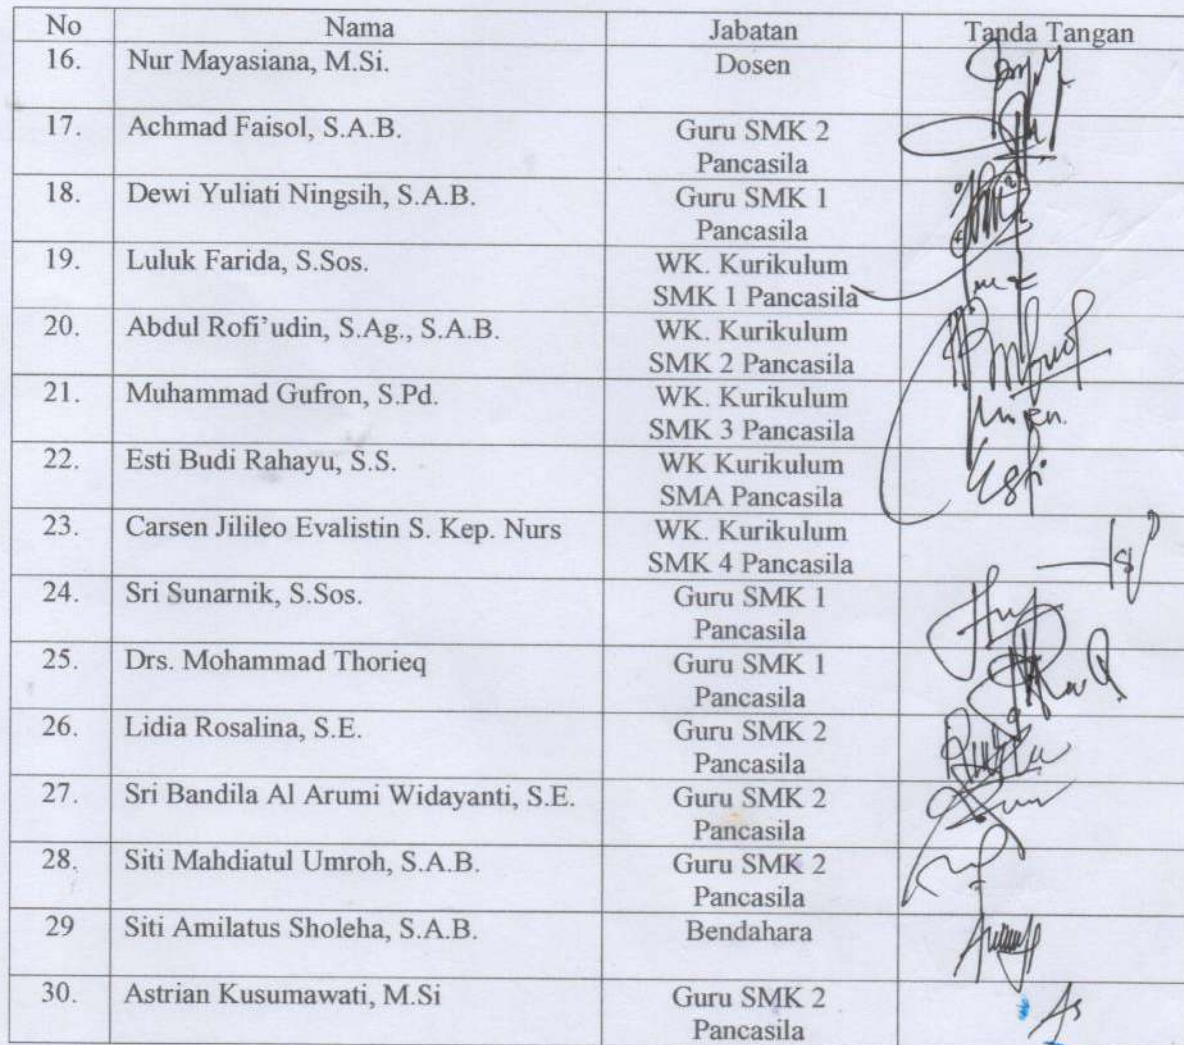 No Nama Jabatan Tanda Tangan
16. Nur Mayasiana, M.Si. Dosen
17. Achmad Faisol, S.A.B. Guru SMK 2
Pancasila
18. Dewi Yuliati Ningsih, S.A.B. Guru SMK 1
Pancasila
19. Luluk Farida, S.Sos. WK. Kurikulum
SMK 1 Pancasila
20. Abdul Rofi'udin, S.Ag., S.A.B. WK. Kurikulum
SMK 2 Pancasila
21. Muhammad Gufron, S.Pd. WK. Kurikulum
SMK 3 Pancasila
22. Esti Budi Rahayu, S.S. WK Kurikulum
SMA Pancasila
Esti
23. Carsen Jilileo Evalistin S. Kep. Nurs WK. Kurikulum
SMK 4 Pancasila
24. Sri Sunarnik, S.Sos. Guru SMK 1
Pancasila
25. Drs. Mohammad Thorieq Guru SMK 1
Pancasila
26. Lidia Rosalina, S.E. Guru SMK 2
Pancasila
27. Sri Bandila Al Arumi Widayanti, S.E. Guru SMK 2
Pancasila
28. Siti Mahdiatul Umroh, S.A.B. Guru SMK 2
Pancasila
29 Siti Amilatus Sholeha, S.A.B. Bendahara
30. Astrian Kusumawati, M.Si Guru SMK 2
Pancasila